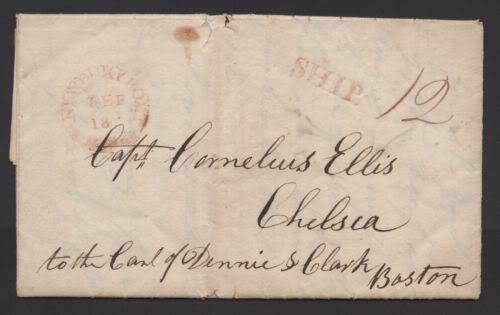 NEWBURYPORT
SEP
18
SHIP
12
Capt. Cornelius Ellis
Chelsea
to the Care of Dennie & Clark
Boston